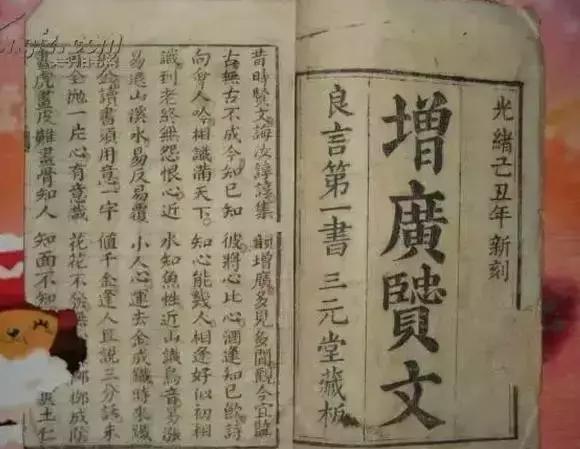 光緒己丑年新刻
增廣賢文
良言第一書 三元堂藏板
昔時賢文誨汝諄諄集韻增廣多見多聞觀今宜監
古無古不成今知己知彼將心比心酒逢知己飲詩
向會人吟相識滿天下知心能幾人相逢好似初相
識到老終無怨恨心近水知魚性近山識鳥音易漲
易退山溪水易反易覆小人心運去金成鐵時來鐵
似金讀書須用意一字值千金逢人且說三分話未
可全拋一片心有意栽花花不發無柳成陰
畫虎畫皮難畫骨知人知面不知與土仁